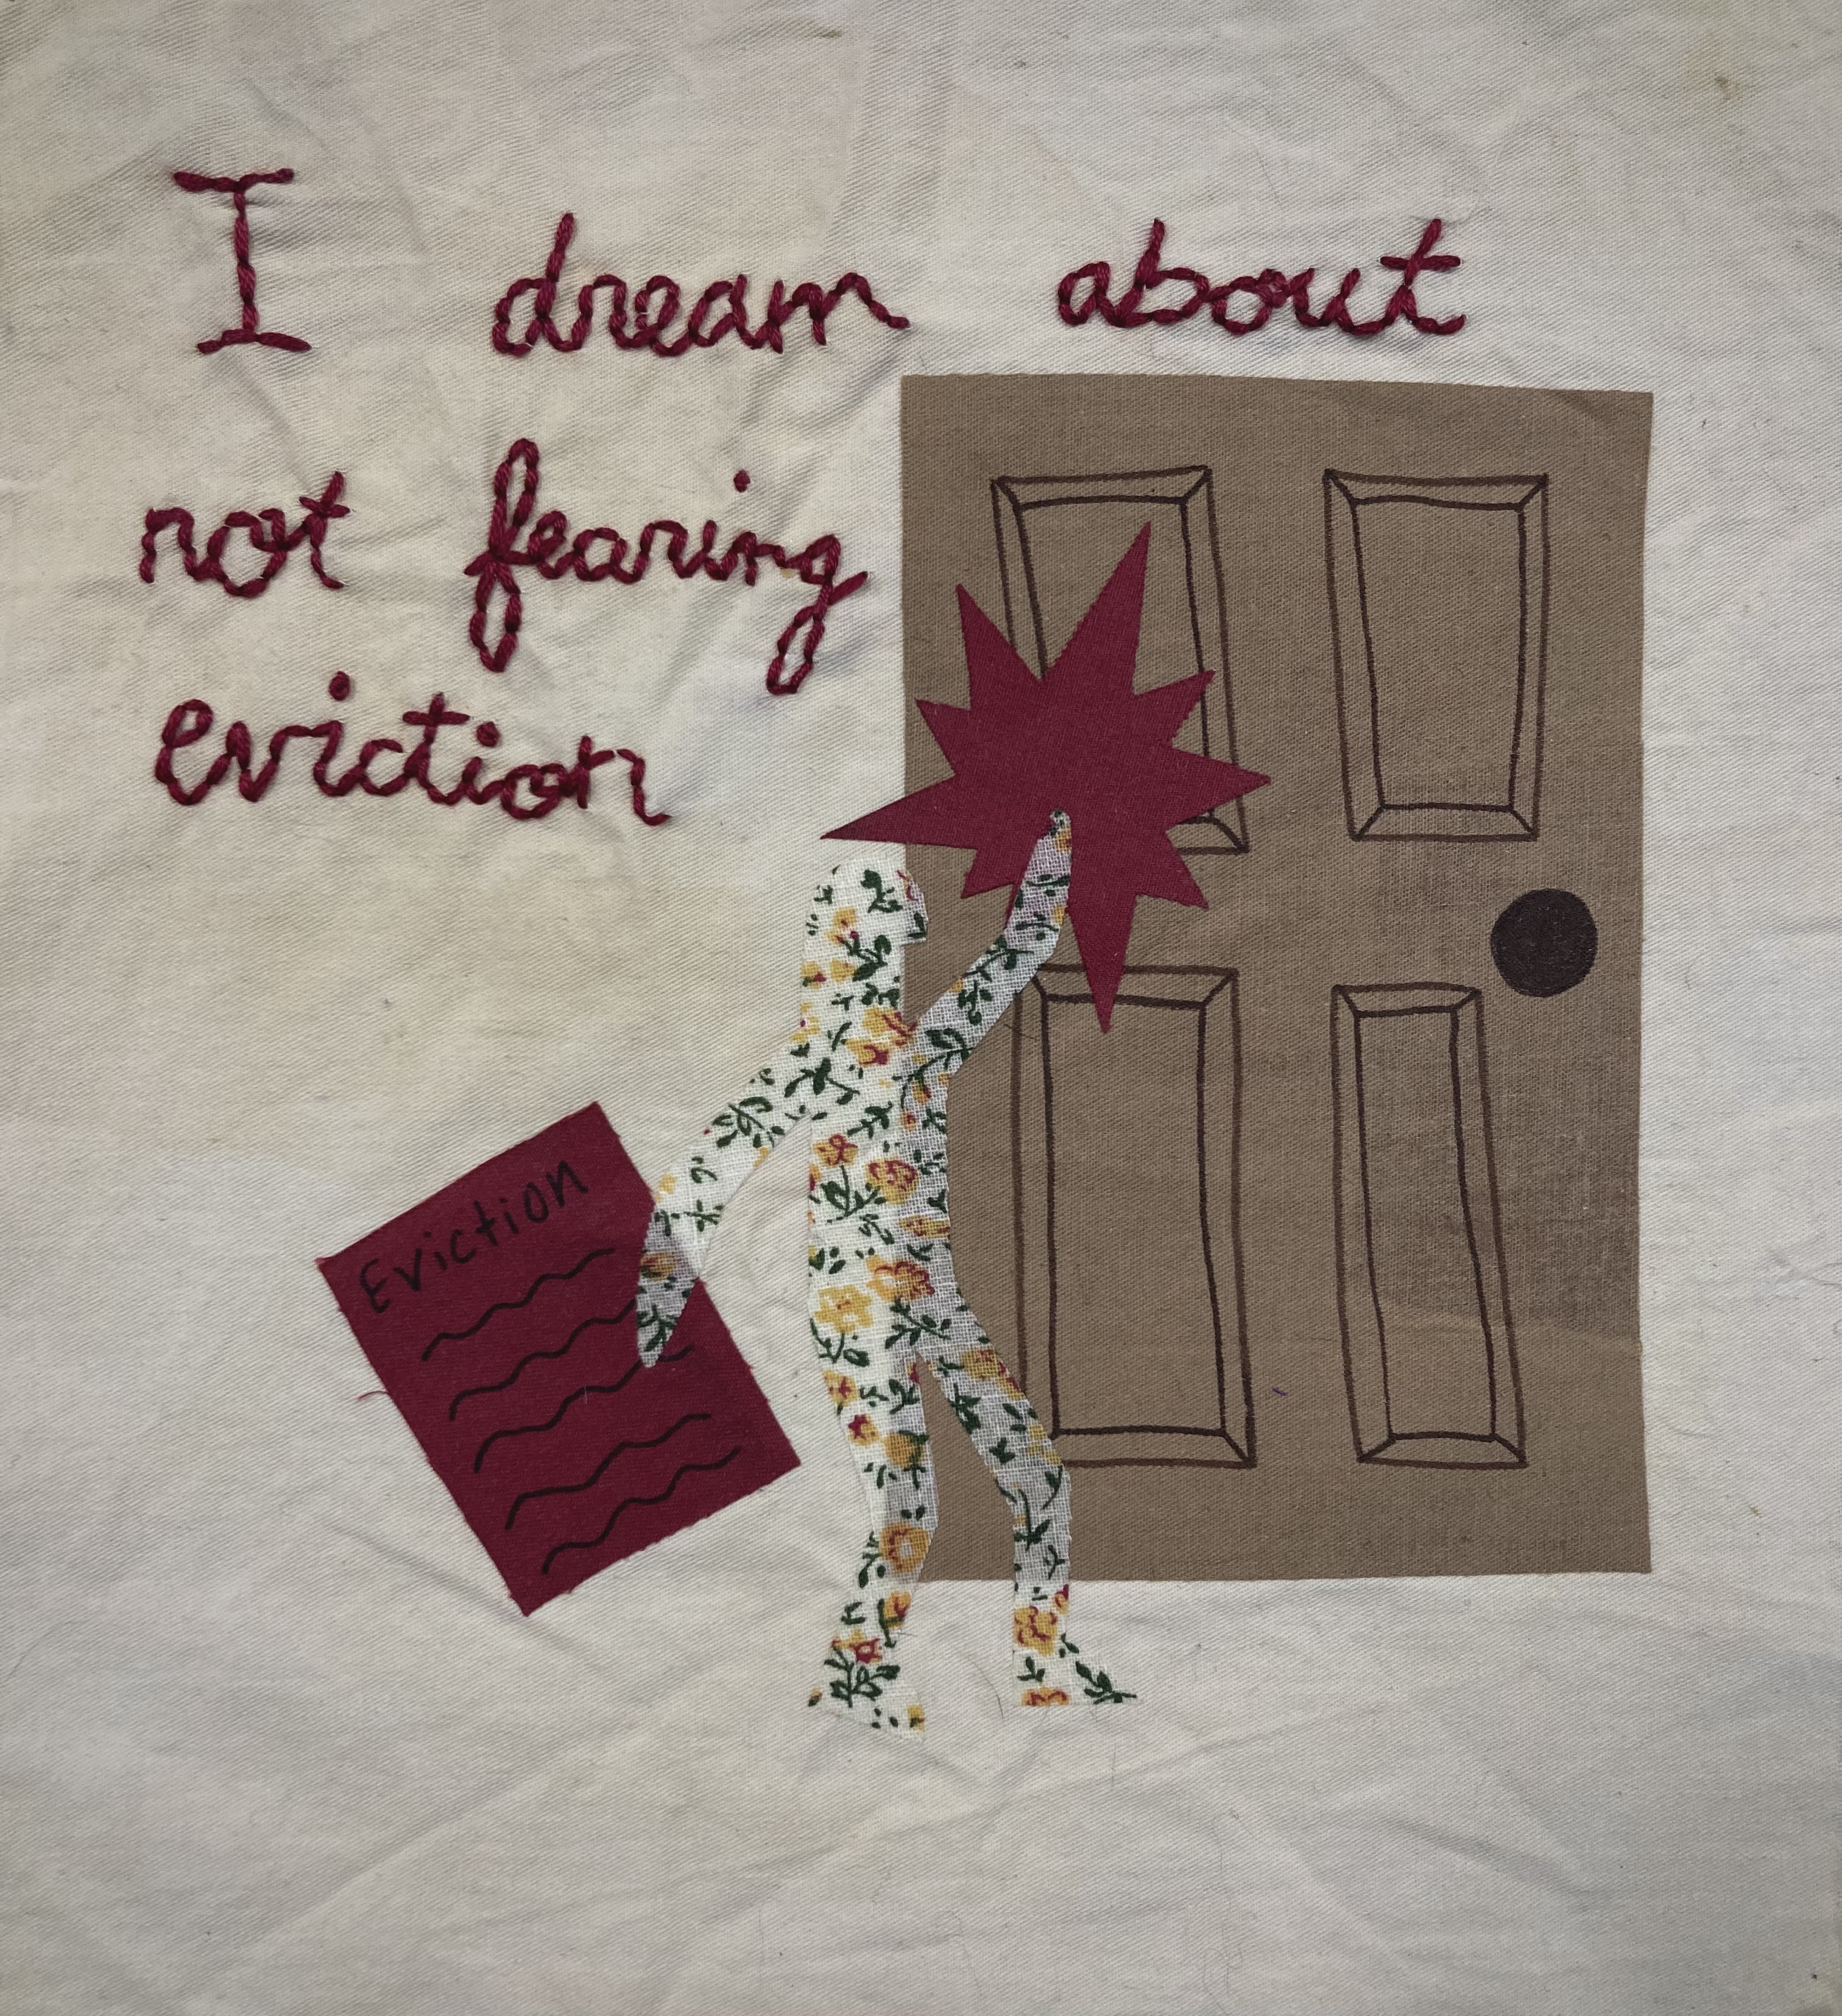 I dream about
not fearing
eviction
Eviction